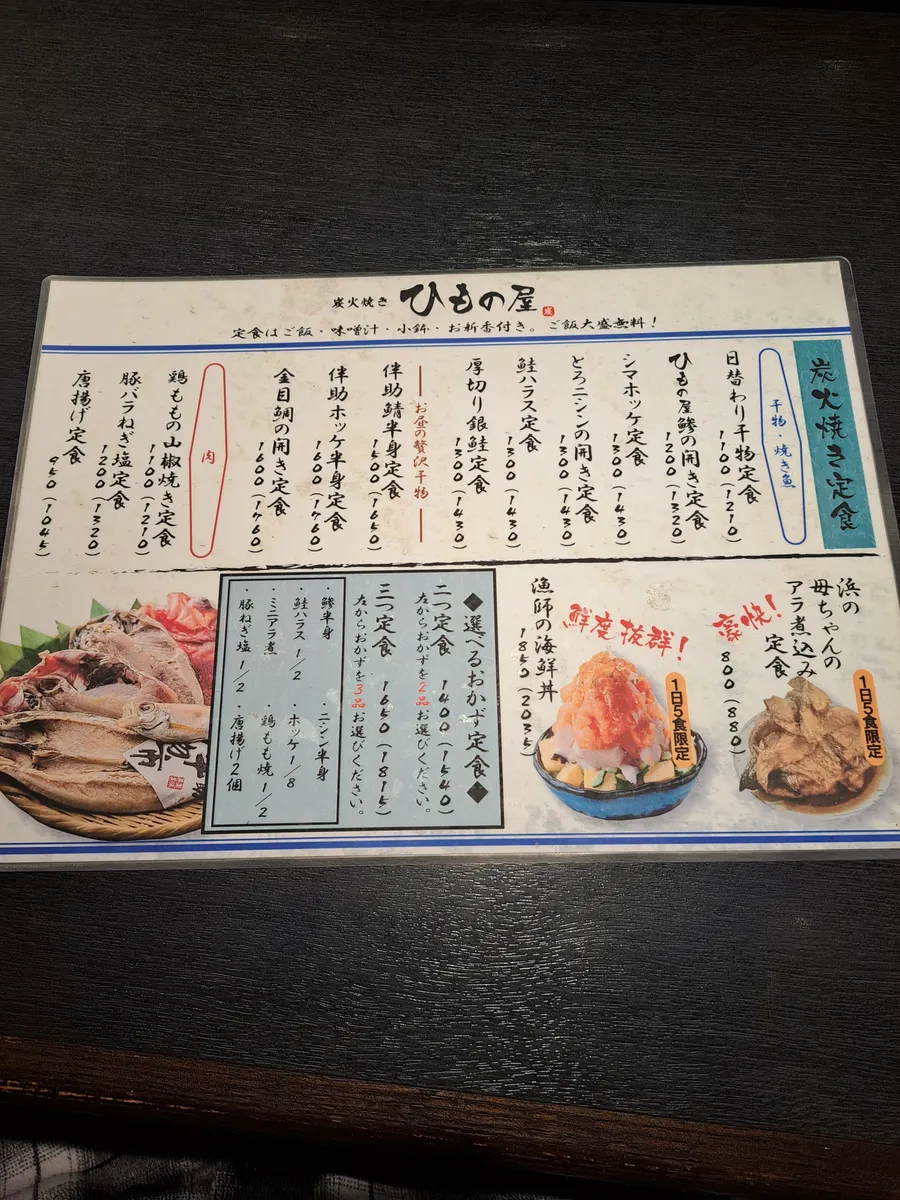 炭火焼き ひもの屋
定食はご飯・味噌汁・小鉢・お新香付き。ご飯大盛無料！
炭火焼き定食
干物・焼き魚
日替わり干物定食
1100（1210）
ひもの屋鯵の開き定食
1200（1320）
シマホッケ定食
1300（1430）
とろニシンの開き定食
1300（1430）
鮭ハラス定食
1300（1430）
厚切り銀鮭定食
1300（1430）
お昼の贅沢干物
伴助鯖半身定食
1500（1650）
伴助ホッケ半身定食
1600（1760）
金目鯛の開き定食
1600（1760）
肉
鶏ももの山椒焼き定食
1100（1210）
豚バラねぎ塩定食
1200（1320）
唐揚げ定食
950（1045）
浜の
母ちゃんの
アラ煮込み
定食
豪快！
800（880）
1日5食限定
鮮度抜群！
1日5食限定
漁師の海鮮丼
1850（2035）
◆選べるおかず定食◆
二つ定食 1400（1540）
左からおかずを2品お選びください。
三つ定食 1650（1815）
左からおかずを3品お選びください。
・鯵半身 ・ニシン半身
・鮭ハラス 1/2 ・ホッケ 1/8
・ミニアラ煮 ・鶏もも焼 1/2
・豚ねぎ塩 1/2 ・唐揚げ2個